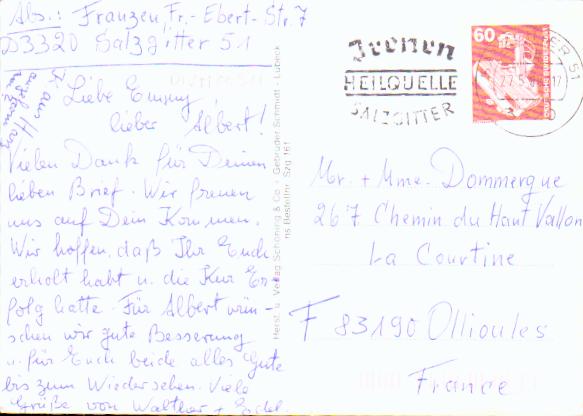 Abs.: Franzen, Fr.-Ebert-Str. 7
D3320 Salzgitter 51
Liebe Emmy,
lieber Albert!
Vielen Dank für Deinen
lieben Brief. Wir freuen
uns auf Dein Kommen.
Wir hoffen, daß Ihr Euch
erholt habt u. die Kur Er-
folg hatte. Für Albert wün-
schen wir gute Besserung
u. für Euch beide alles Gute
bis zum Wiedersehen. Viele
Grüße von Walther + Edel.
Herst. u. Verlag Schöning & Co + Gebrüder Schmidt, Lübeck
Bestellnr. Szg 161
Thermen
HEILQUELLE
SALZGITTER
60
Mr. + Mme. Dommergue
267 Chemin du Haut Vallon
La Courtine
F 83190 Ollioules
France